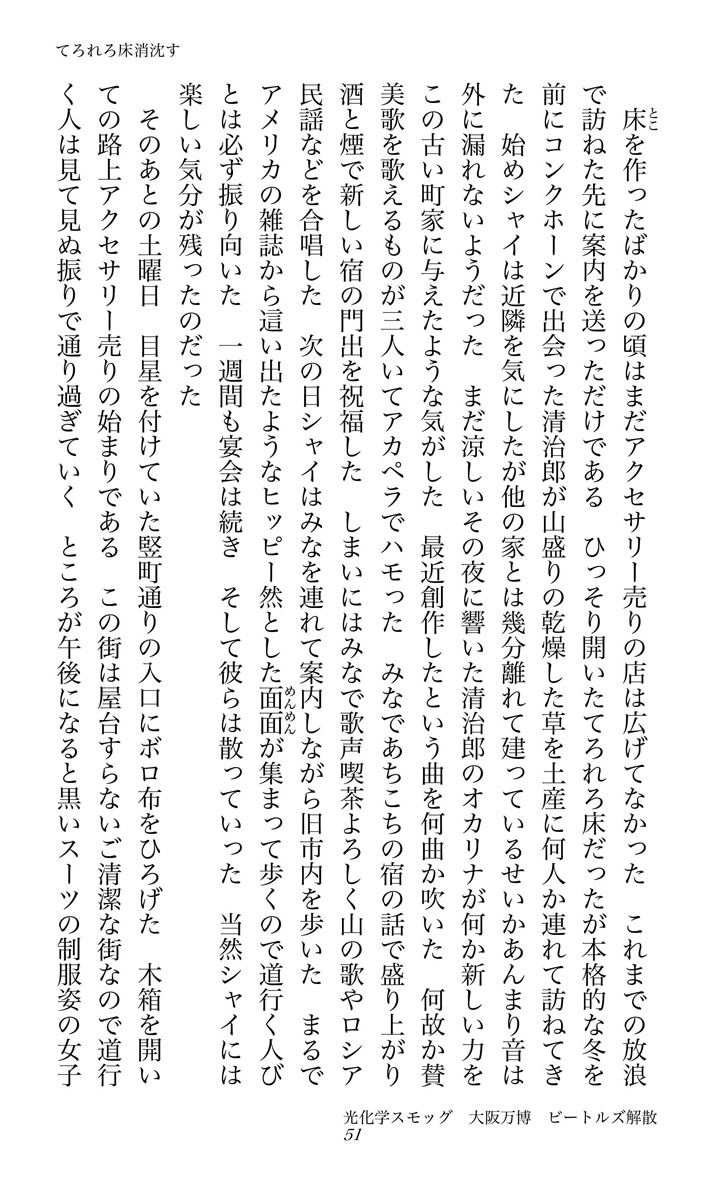 てろれろ床消沈す
床とこを作ったばかりの頃はまだアクセサリー売りの店は広げてなかった　これまでの放浪
で訪ねた先に案内を送っただけである　ひっそり開いたてろれろ床だったが本格的な冬を
前にコンクホーンで出会った清治郎が山盛りの乾燥した草を土産に何人か連れて訪ねてき
た　始めシャイは近隣を気にしたが他の家とは幾分離れて建っているせいかあんまり音は
外に漏れないようだった　まだ涼しいその夜に響いた清治郎のオカリナが何か新しい力を
この古い町家に与えたような気がした　最近創作したという曲を何曲か吹いた　何故か賛
美歌を歌えるものが三人いてアカペラでハモった　みなであちこちの宿の話で盛り上がり
酒と煙で新しい宿の門出を祝福した　しまいにはみなで歌声喫茶よろしく山の歌やロシア
民謡などを合唱した　次の日シャイはみなを連れて案内しながら旧市内を歩いた　まるで
アメリカの雑誌から這い出たようなヒッピー然とした面面めんめんが集まって歩くので道行く人び
とは必ず振り向いた　一週間も宴会は続き　そして彼らは散っていった　当然シャイには
楽しい気分が残ったのだった
そのあとの土曜日　目星を付けていた竪町通りの入口にボロ布をひろげた　木箱を開い
ての路上アクセサリー売りの始まりである　この街は屋台すらないご清潔な街なので道行
く人は見て見ぬ振りで通り過ぎていく　ところが午後になると黒いスーツの制服姿の女子
光化学スモッグ　大阪万博　ビートルズ解散
51